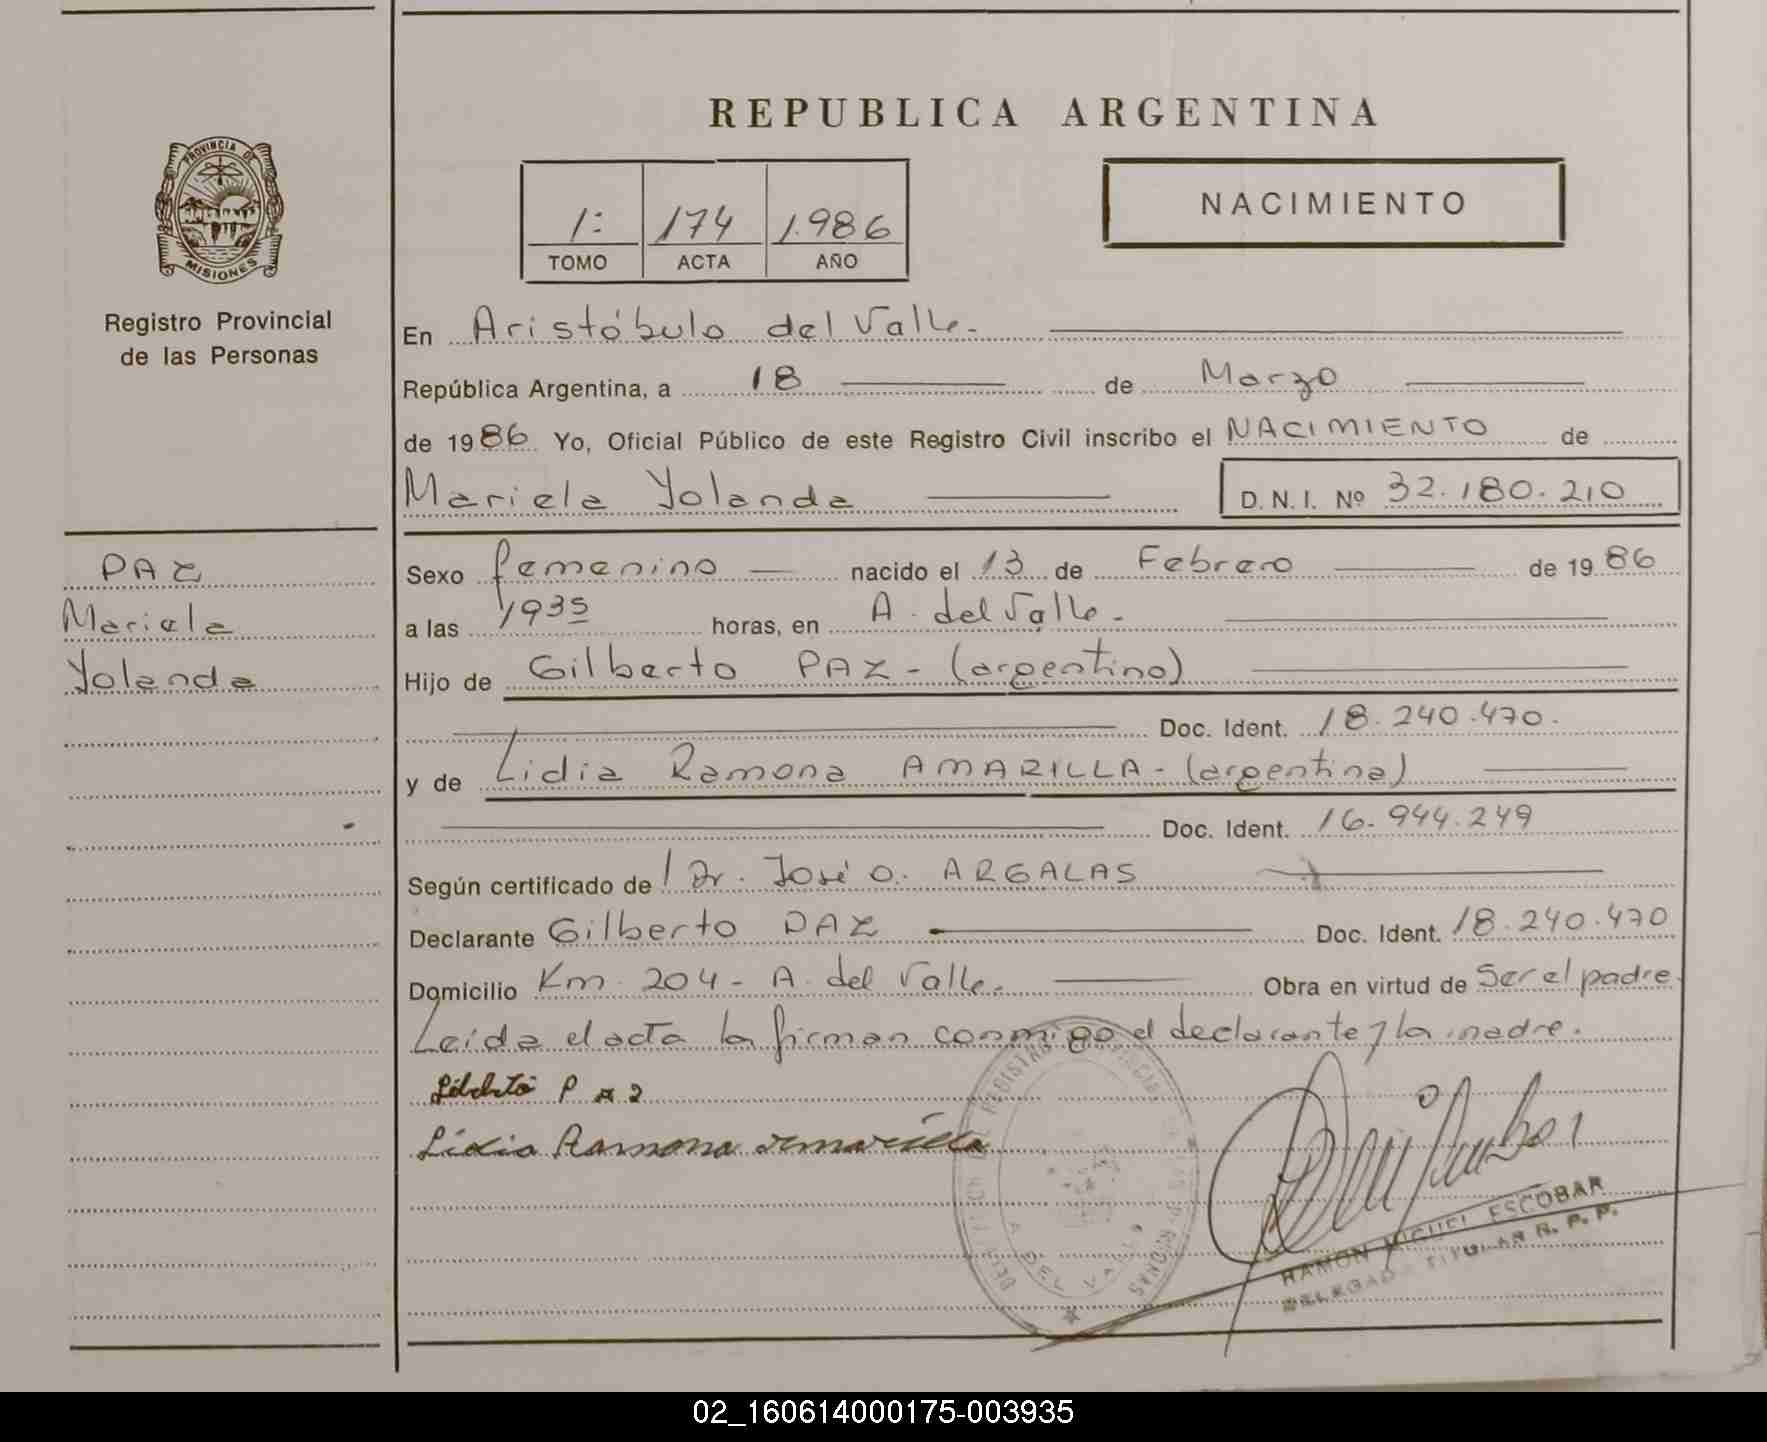 REPUBLICA ARGENTINA
PROVINCIA DE
MISIONES
Registro Provincial
de las Personas
1:
174
1.986
TOMO
ACTA
AÑO
NACIMIENTO
En Aristóbulo del Valle.-
República Argentina, a 18 de Marzo
de 1986 Yo, Oficial Público de este Registro Civil inscribo el NACIMIENTO de
Mariela Yolanda D.N.I. Nº 32.180.210
PAZ
Mariela
Yolanda
Sexo femenino - nacido el 13 de Febrero de 1986
a las 1935 horas, en A. del Valle.-
Hijo de Gilberto PAZ - (argentino)
Doc. Ident. 18.240.470.
y de Lidia Ramona AMARILLA - (argentina)
Doc. Ident. 16.944.249
Según certificado de Dr. José O. ARGALAS
Declarante Gilberto PAZ Doc. Ident. 18.240.470
Domicilio Km. 204 - A. del Valle. Obra en virtud de Ser el padre.
Leída el acta la firman conmigo el declarante y la madre.
Paz
Lidia Ramona Amarilla
A. DEL VALLE
RAMON MIGUEL ESCOBAR
DELEGADO TITULAR R. P. P.
02_160614000175-003935